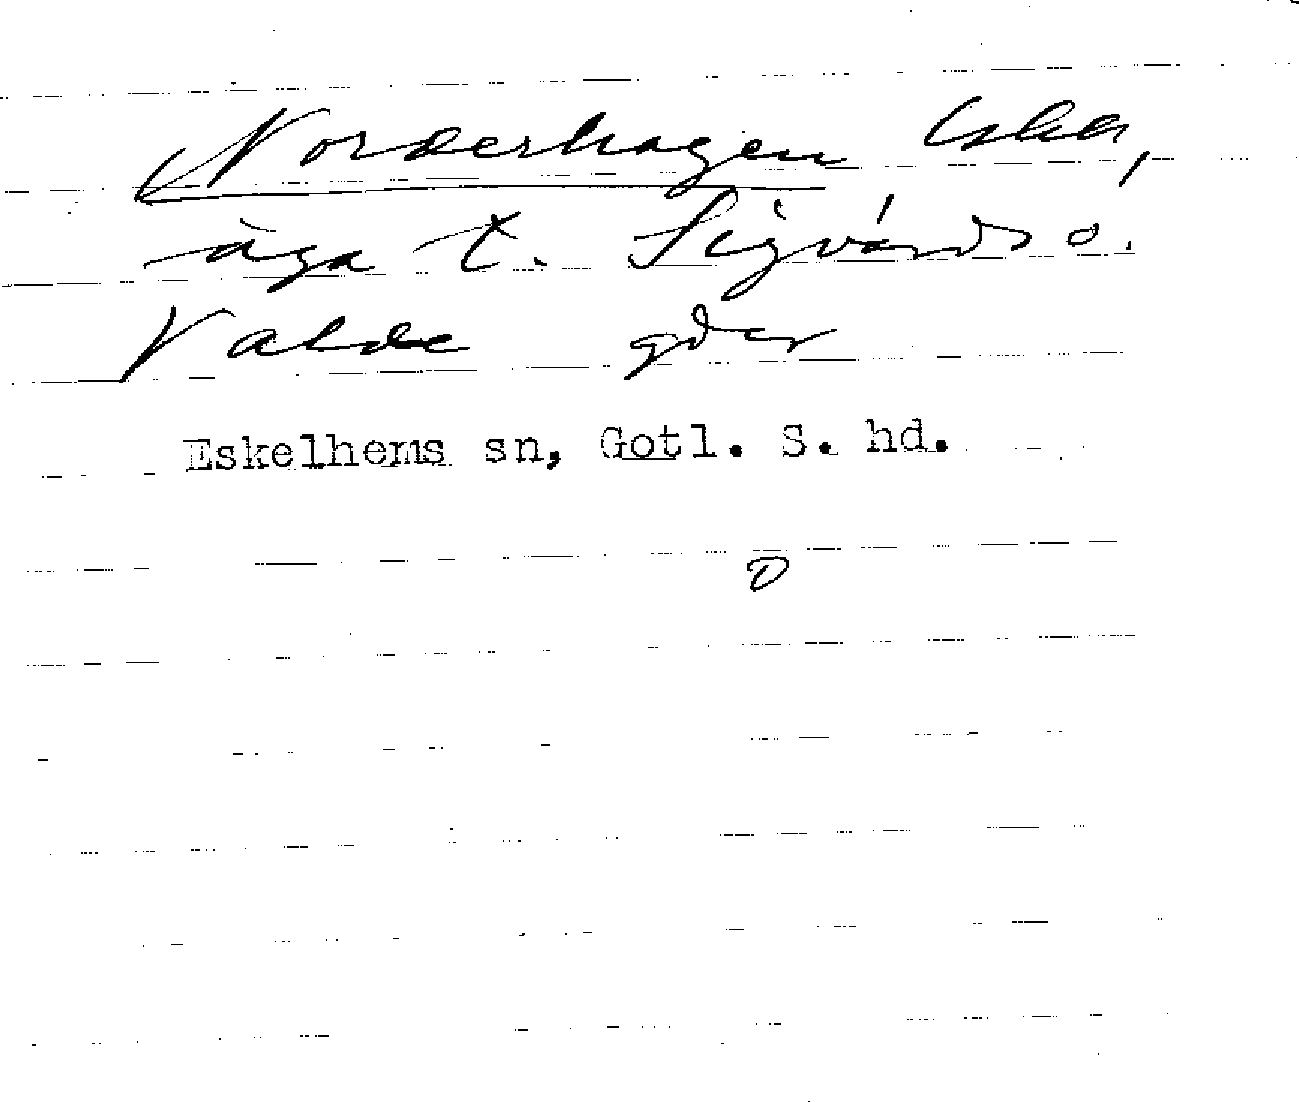 Norderhagen
äga t. Sigvards o.
Valde gdr
Eskelhems sn, Gotl. S. hd.